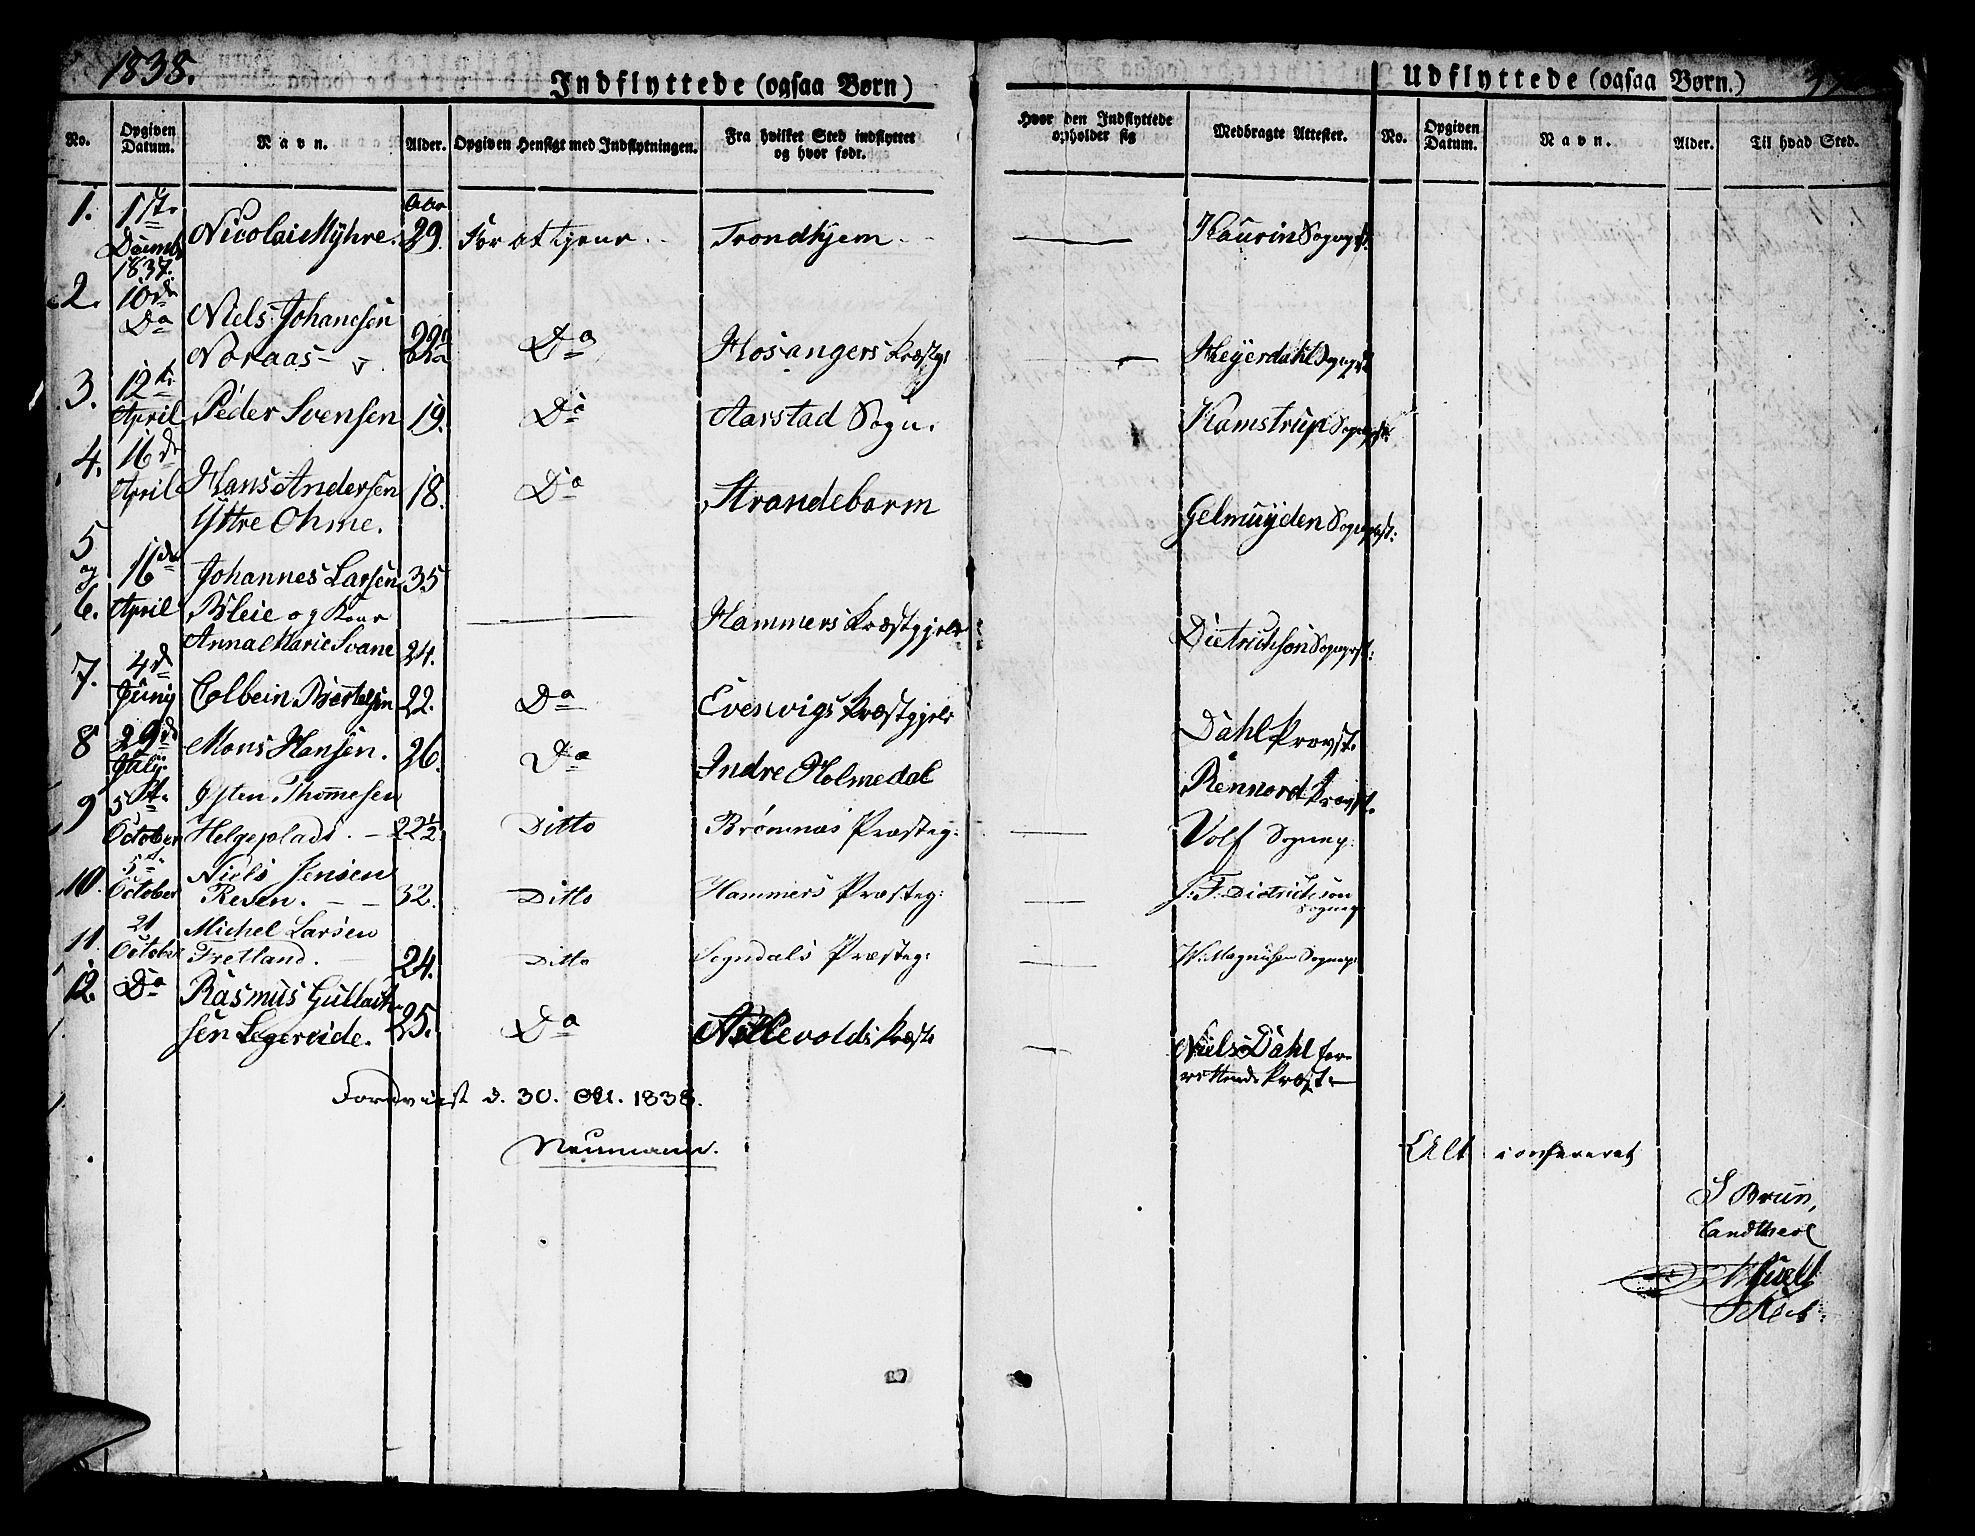 1838.
Indflyttede (ogsaa Børn)
Udflyttede (ogsaa Børn.)
No. Opgiven Datum. Navn. Alder. Opgiven Hensigt med Indflytningen. Fra hvilket Sted indflyttet og hvor født. Hvor den Indflyttede opholder sig Medbragte Attester. No. Opgiven Datum. Navn. Alder. Til hvad Sted.
1. 1ste Decemb 1837. Nicolai Myhre. Aar 29. For at tjene Trondhjem Kaurin Sognepr.
2. 10de Do Niels Johanesen Noraas Do Hosangers Præstg: Heyerdahl Sognepr
3. 12te April Peder Svensen 19. Do Aarstad Sogn. Kamstrup Sognepr.
4. 16de April Hans Andersen Yttre Ohme. 18. Do Strandebarm Gelmuyden Sogneprst:
5 og 6. 16de April Johannes Larsen Bleie og Kone Anna Marie Svane 35 24. Hammers Præstgjeld Dietrichson Sogneprst:
7. 4de Junij Colbein Bertelsen 22. Do Evenvigs Præstgjeld Dahl Provst.
8 29de Julij Mons Hansen. 26. Do Indre Holmedal Rennord Provst.
9 5te October Østen Thommesen Helgeplads. 22½ Ditto Brønnøs Præsteg: Volf Sognep:
10. 5te October Niels Jensen Reven. 32. Ditto Hammers Præsteg: J. F. Dietrichson Sognep
11. 21 October Michel Larsen Fretland. 24. Ditto Sogndals Præsteg: W. Magnusen Sognep:
12. Do Rasmus Gullack- sen Legereide. 25. Do Præst. Niels Dahl for- rettende Præst
Foreviist d. 30. Oct. 1838.
Neumann.
Alt confereret
J Brun,